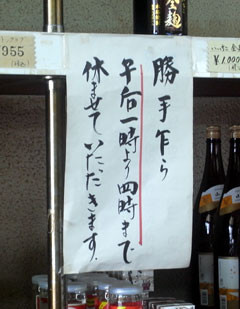 勝手乍ら
午后一時より四時まで
休ませていただきます.
955
¥1,000